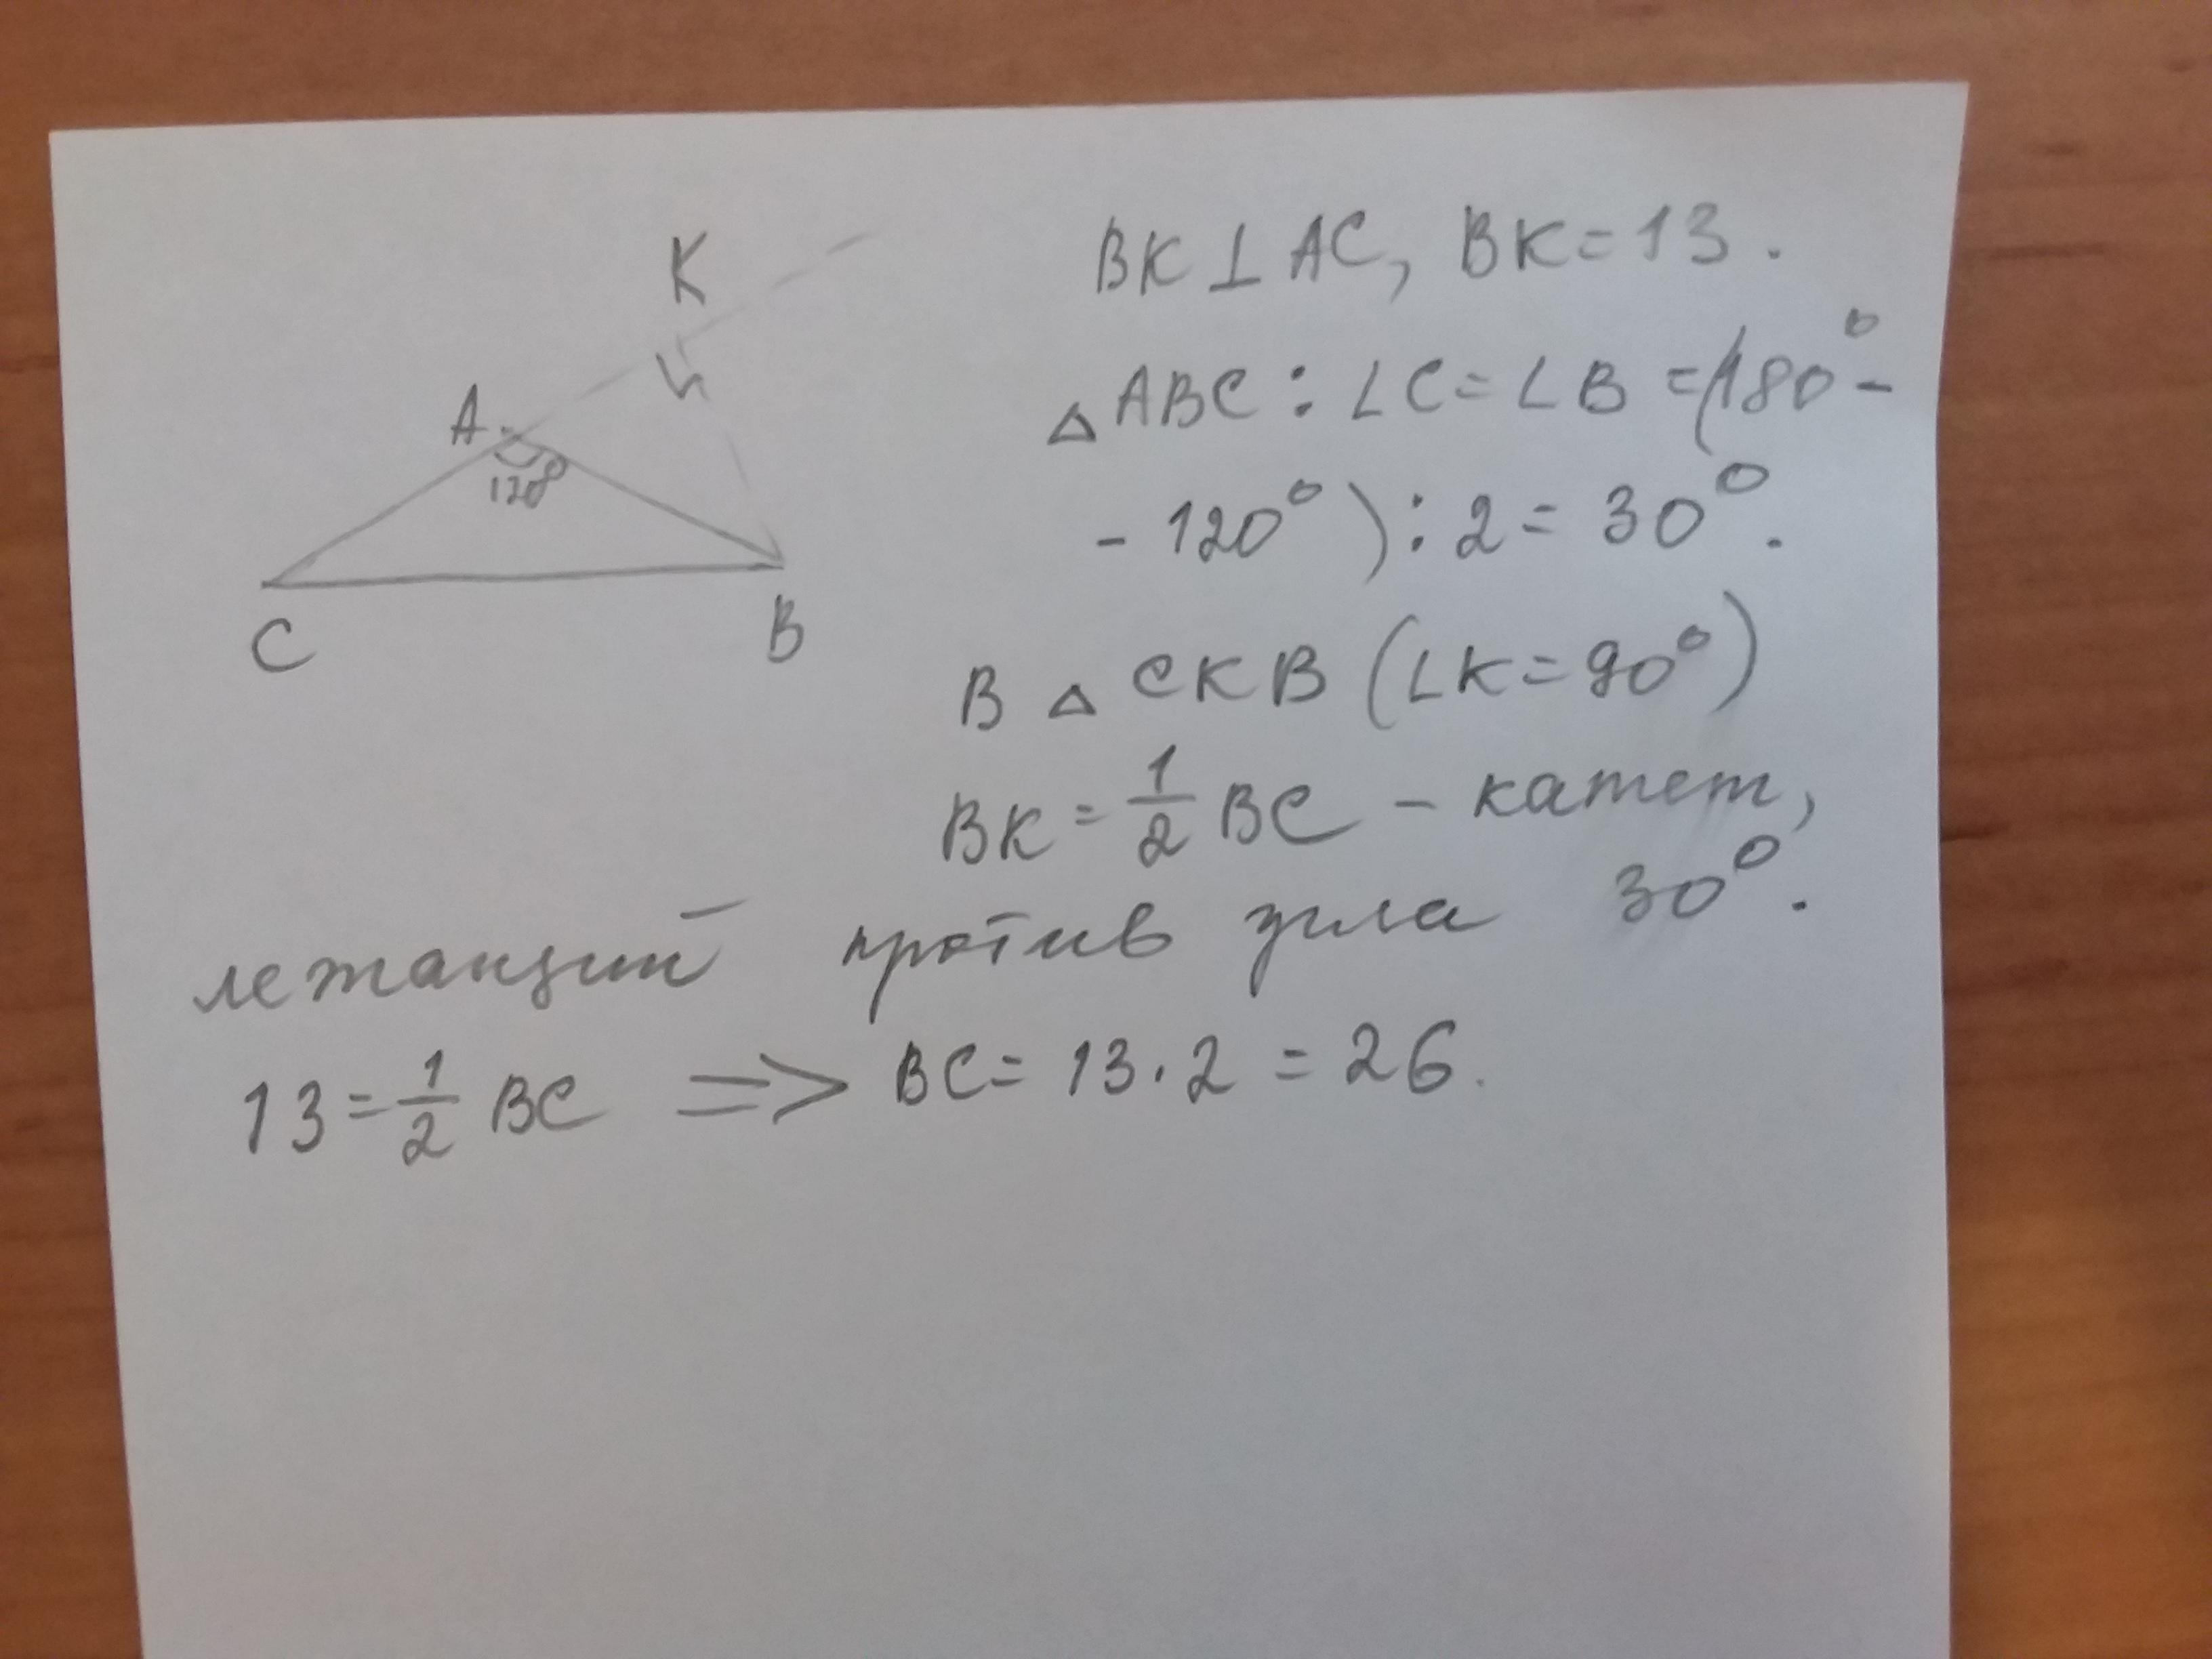 K
A
120°
C
B
BK ⊥ AC, BK = 13.
△ ABC : ∠C = ∠B = (180° -
- 120°) : 2 = 30°.
В △ CKB (∠K = 90°)
BK = 1/2 BC - катет,
лежащий против угла 30°.
13 = 1/2 BC => BC = 13 · 2 = 26.